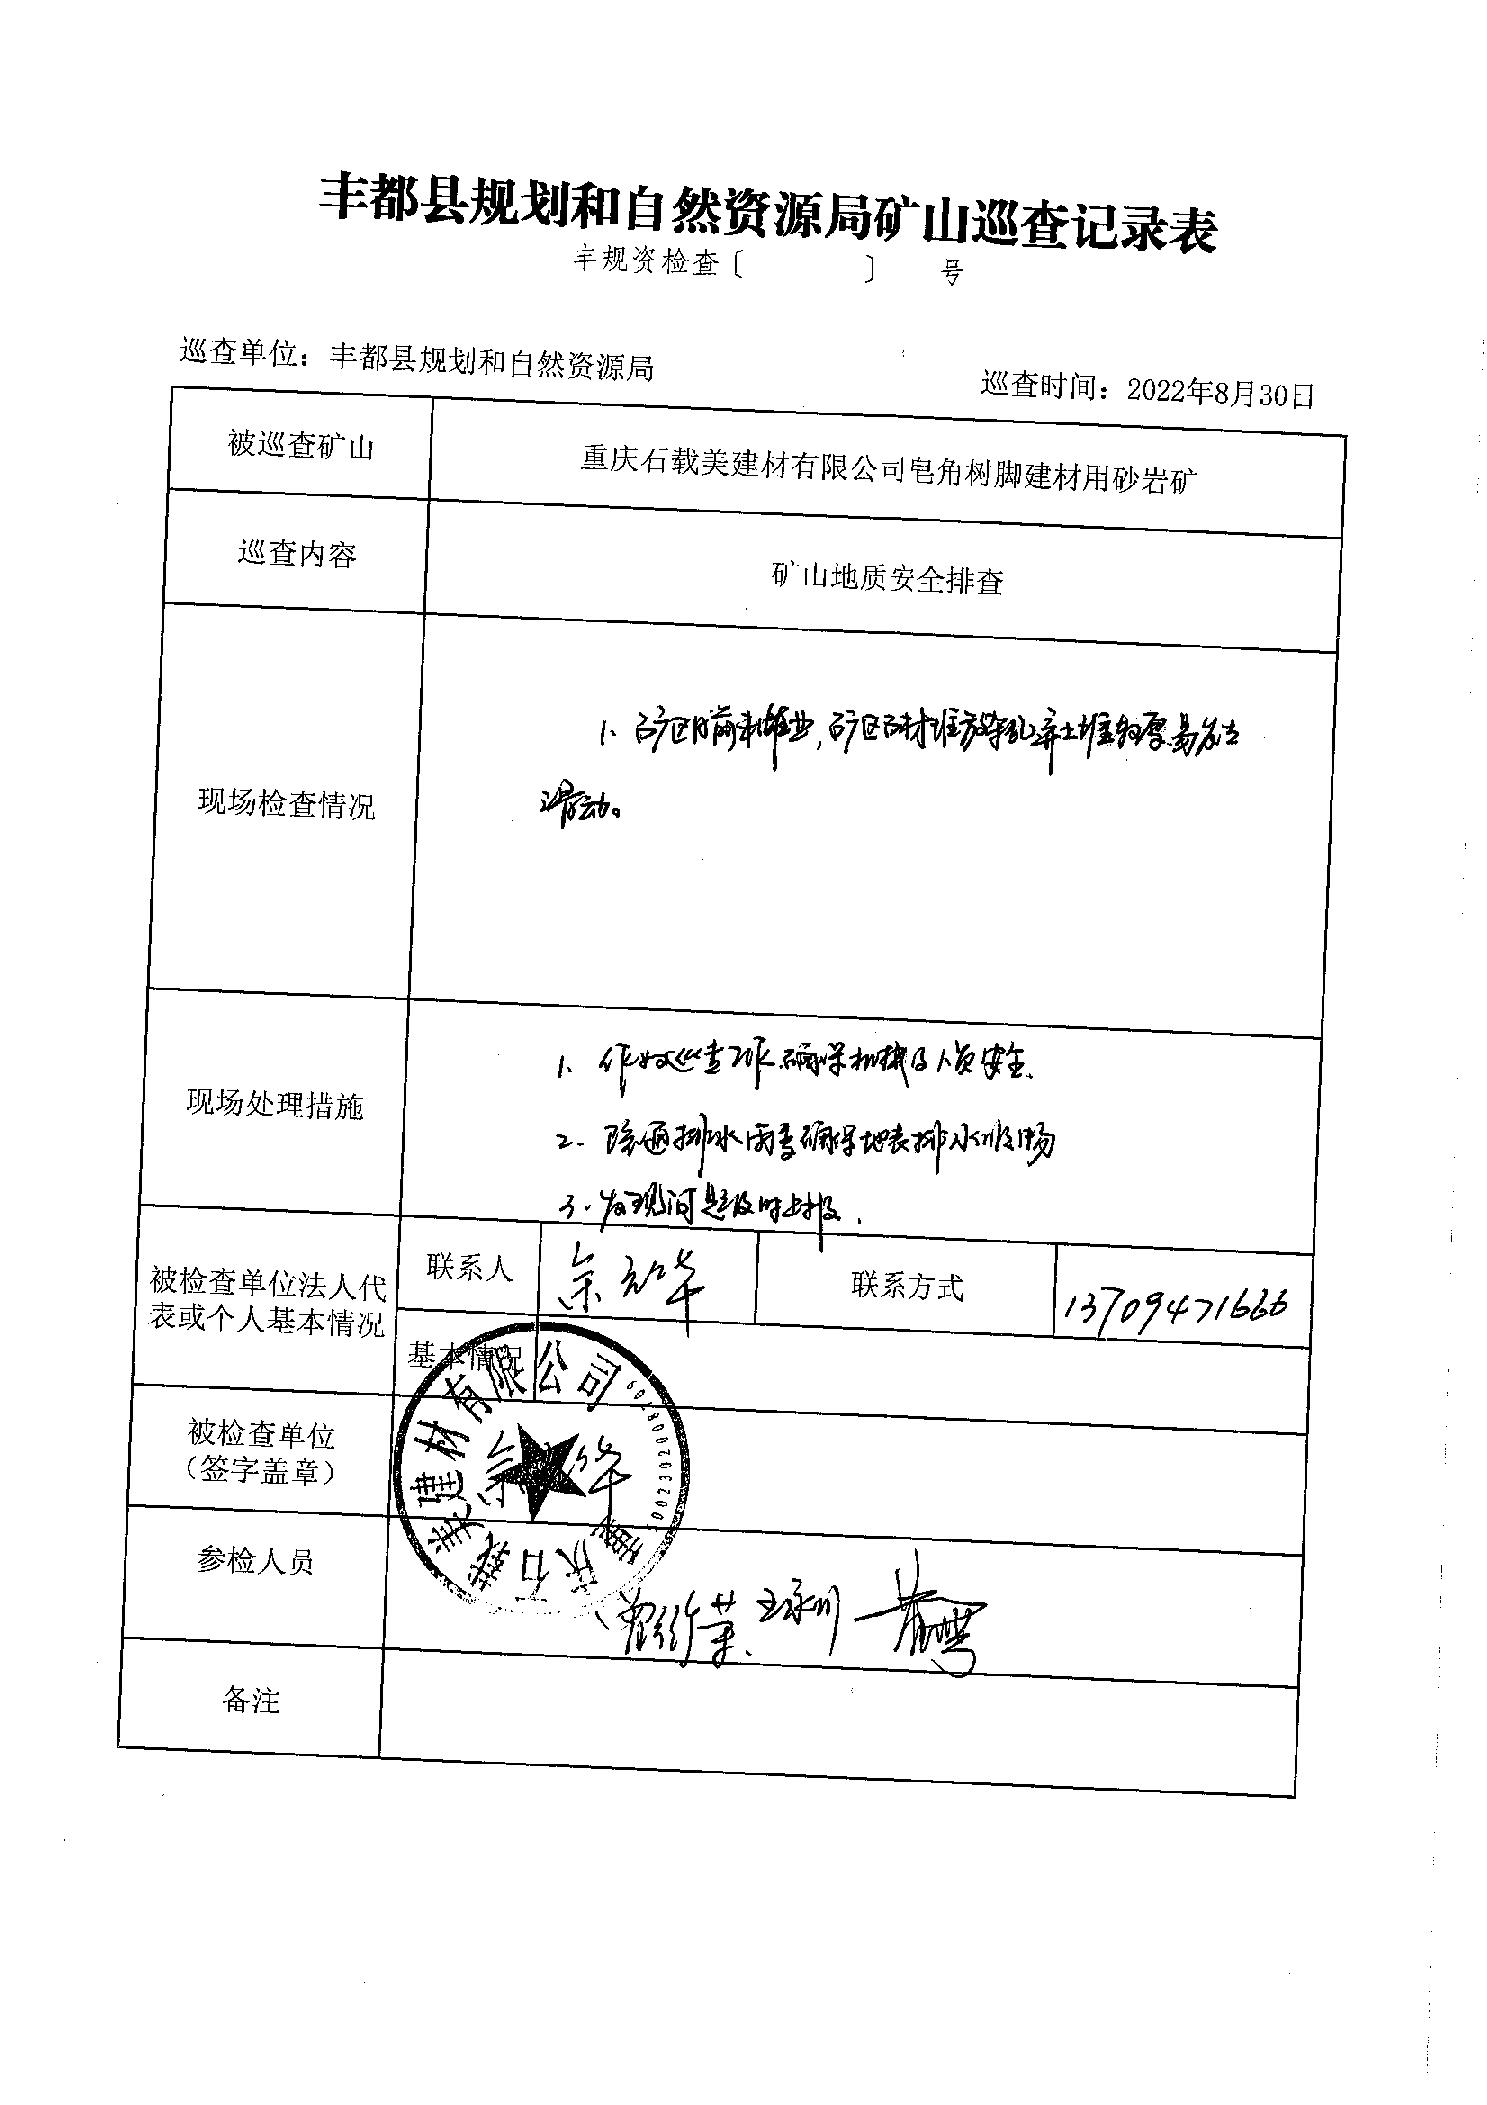 丰都县规划和自然资源局矿山巡查记录表
丰规资检查〔 〕 号
巡查单位：丰都县规划和自然资源局
巡查时间：2022年8月30日
被巡查矿山
重庆石载美建材有限公司皂角树脚建材用砂岩矿
巡查内容
矿山地质安全排查
现场检查情况
1、矿区目前未作业,矿区石材堆放零乱弃土堆较厚易发生
滑动。
现场处理措施
1、作好巡查工作.确保机械及人员安全.
2、疏通排水 雨季确保地表排水顺畅
3、发现问题及时上报.
被检查单位法人代
表或个人基本情况
联系人
余 华
联系方式
13709471666
基本情况
被检查单位
（签字盖章）
余 华
重庆石载美建材有限公司
参检人员
王永川
备注